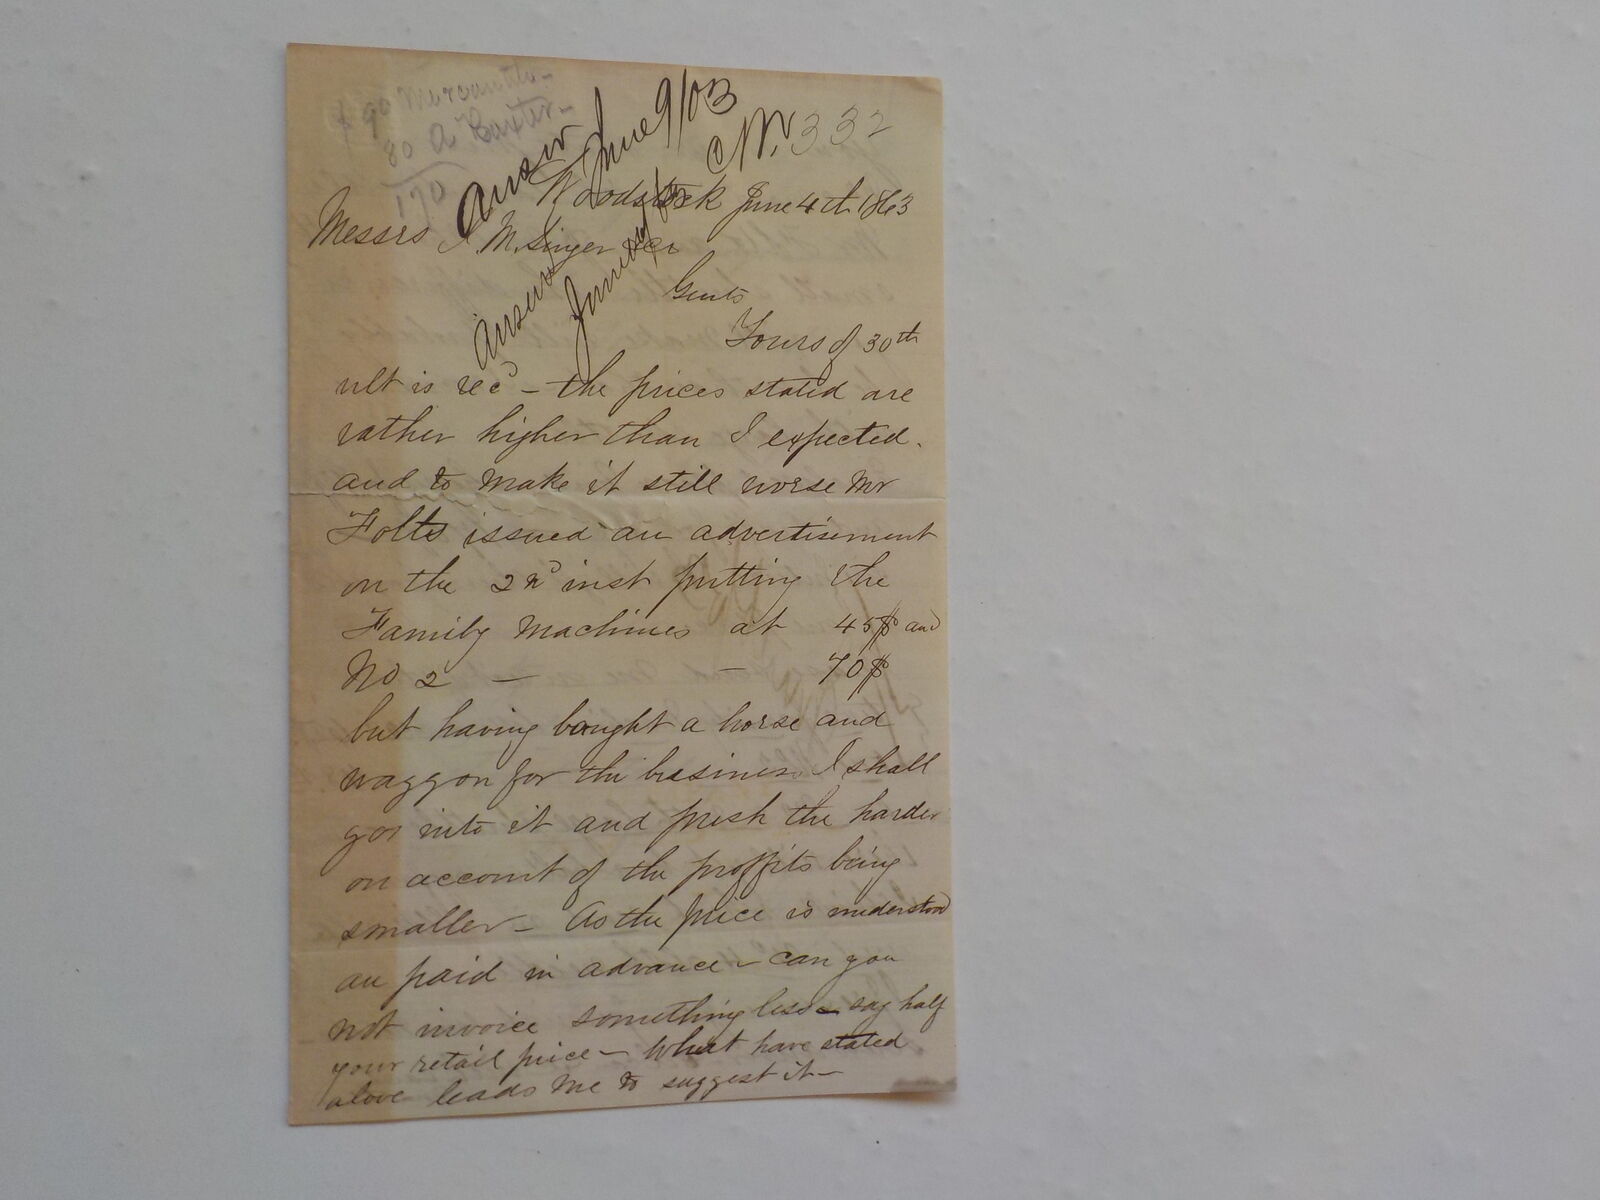 $ 90 Mercantile -
80 A Baxter -
170
Answd June 9/63
N. 332
Answd June
Woodstock June 4th 1863
Messrs I. M. Singer & Co
Gents
Yours of 30th
ult is recd - the prices stated are
rather higher than I expected.
and to make it still worse Mr
Folts issued an advertisement
on the 2nd inst putting the
Family Machines at 45$ and
No 2 — — 70$
but having bought a horse and
waggon for the business I shall
go into it and push the harder
on account of the proffits being
smaller - As the price is understood
au paid in advance - can you
not invoice something less - say half
your retail price - What have stated
above leads me to suggest it -